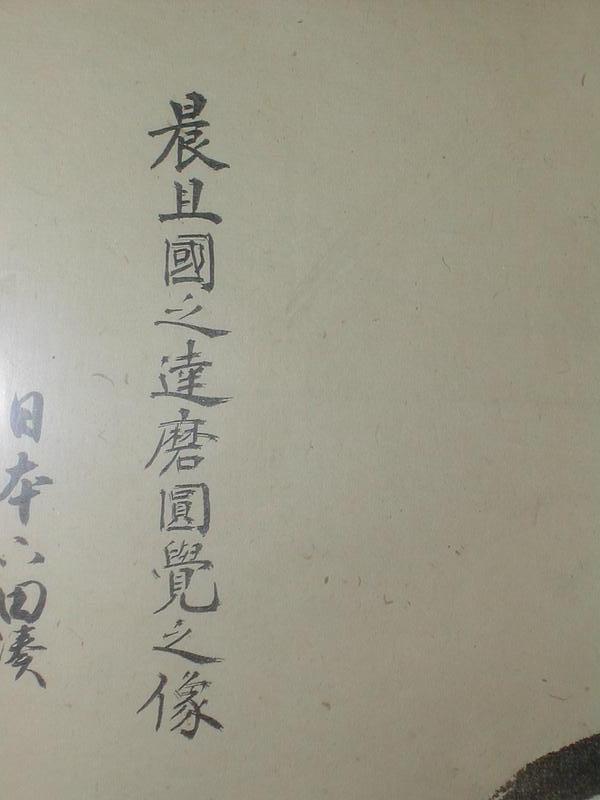 晨旦國之達磨圓覺之像
日本田湊